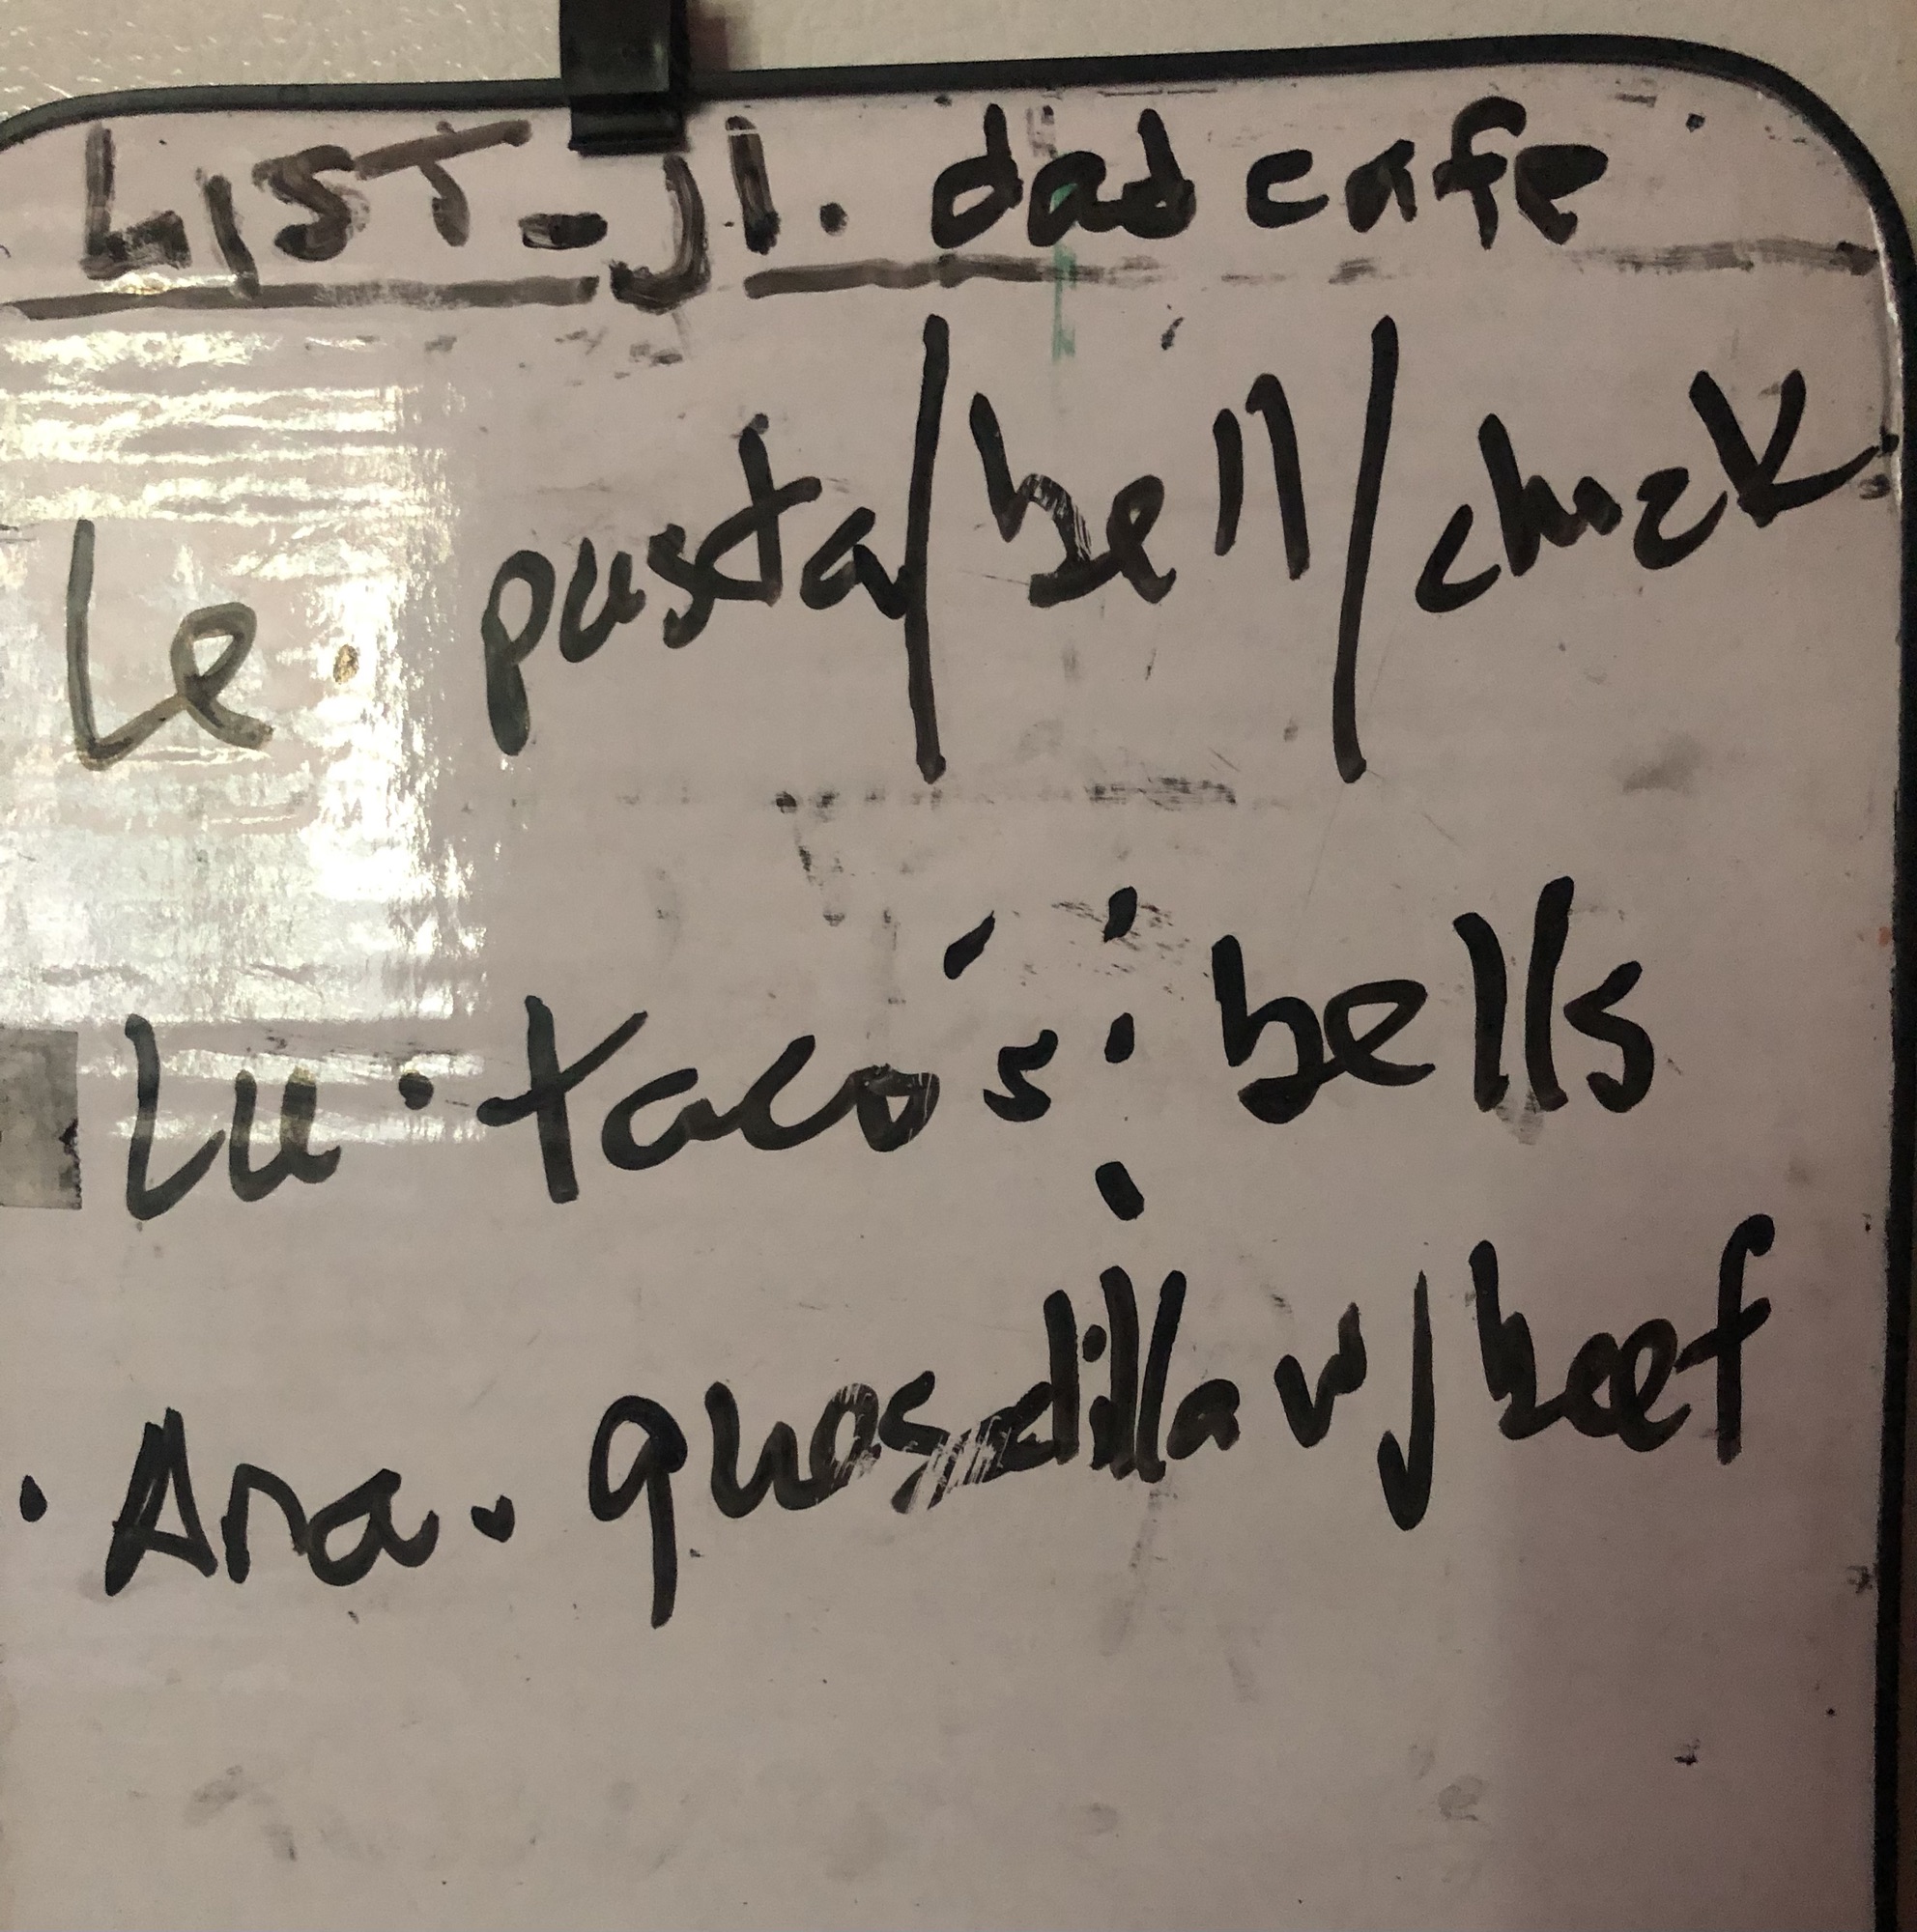 LIST - J1. dad cafe
Le. pasta/bell/chick
Lu. taco's: bells
. Ana. quosdilla w/beef